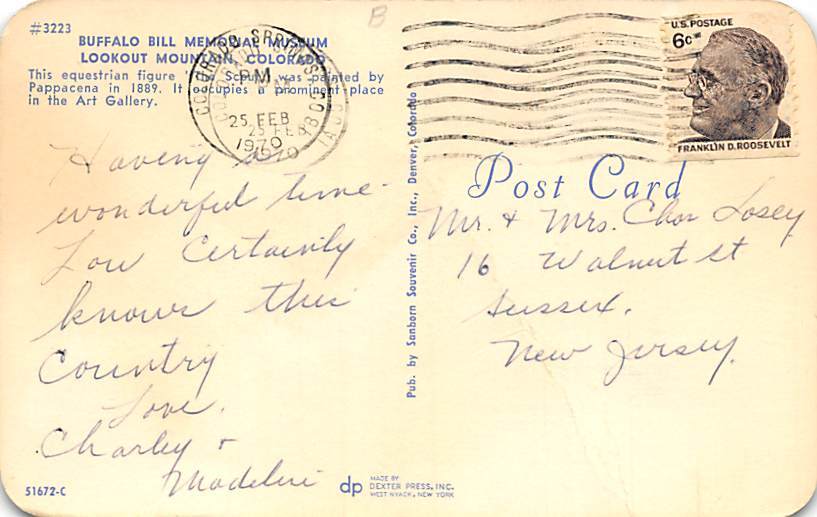 #3223
BUFFALO BILL MEMORIAL MUSEUM
LOOKOUT MOUNTAIN, COLORADO
This equestrian figure was painted by
Pappacena in 1889. It occupies a prominent place
in the Art Gallery.
COLORADO SPRINGS
PM
25 FEB
1970
U.S. POSTAGE
6c
FRANKLIN D. ROOSEVELT
Having a
wonderful time.
Lou certainly
knows this
Country
Love,
Charley +
Madeline
51672-C
Pub. by Sanborn Souvenir Co., Inc., Denver, Colorado
Post Card
Mr. + Mrs. Chas Losey
16 Walnut St
Sussex,
New Jersey.
dp
MADE BY
DEXTER PRESS, INC.
WEST NYACK, NEW YORK
B